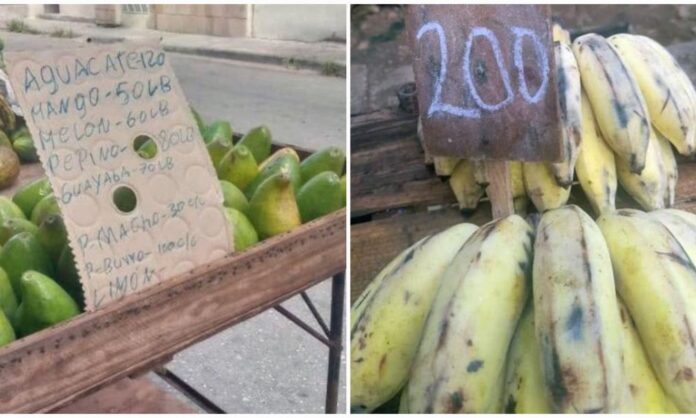 AGUACATE 120
MANGO-50LB
MELON-60LB
PEPINO-80LB
GUAYABA-70LB
P.MACHO-30c/c
P-BURRO-100c/c
LIMÓN
200